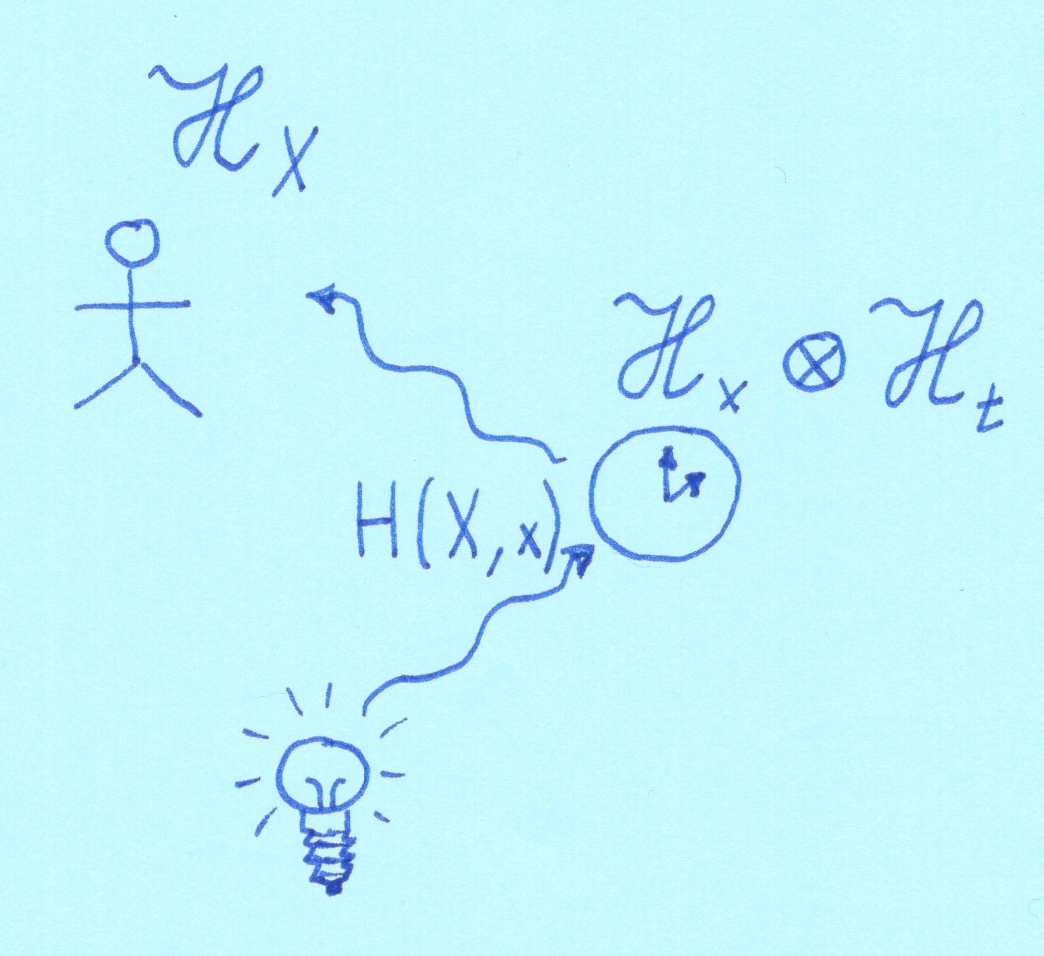 ℋ_X
ℋ_x ⊗ ℋ_t
H(X,x)